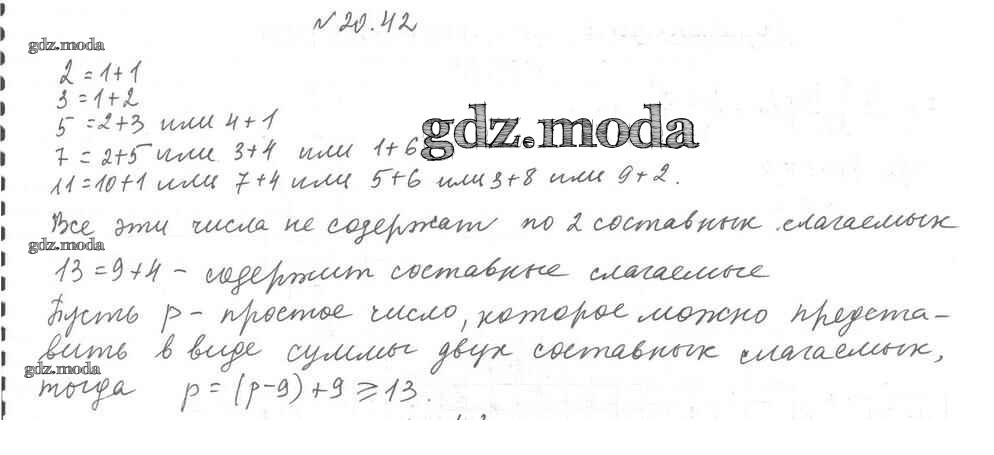 №20.42
gdz.moda
2 = 1+1
3 = 1+2
5 = 2+3 или 4+1
gdz.moda
7 = 2+5 или 3+4 или 1+6
11 = 10+1 или 7+4 или 5+6 или 3+8 или 9+2.
Все эти числа не содержат по 2 составных слагаемых
gdz.moda
13 = 9+4 – содержит составные слагаемые
Пусть p – простое число, которое можно предста-
вить в виде суммы двух составных слагаемых,
gdz.moda
тогда p = (p-9)+9 ⩾ 13.